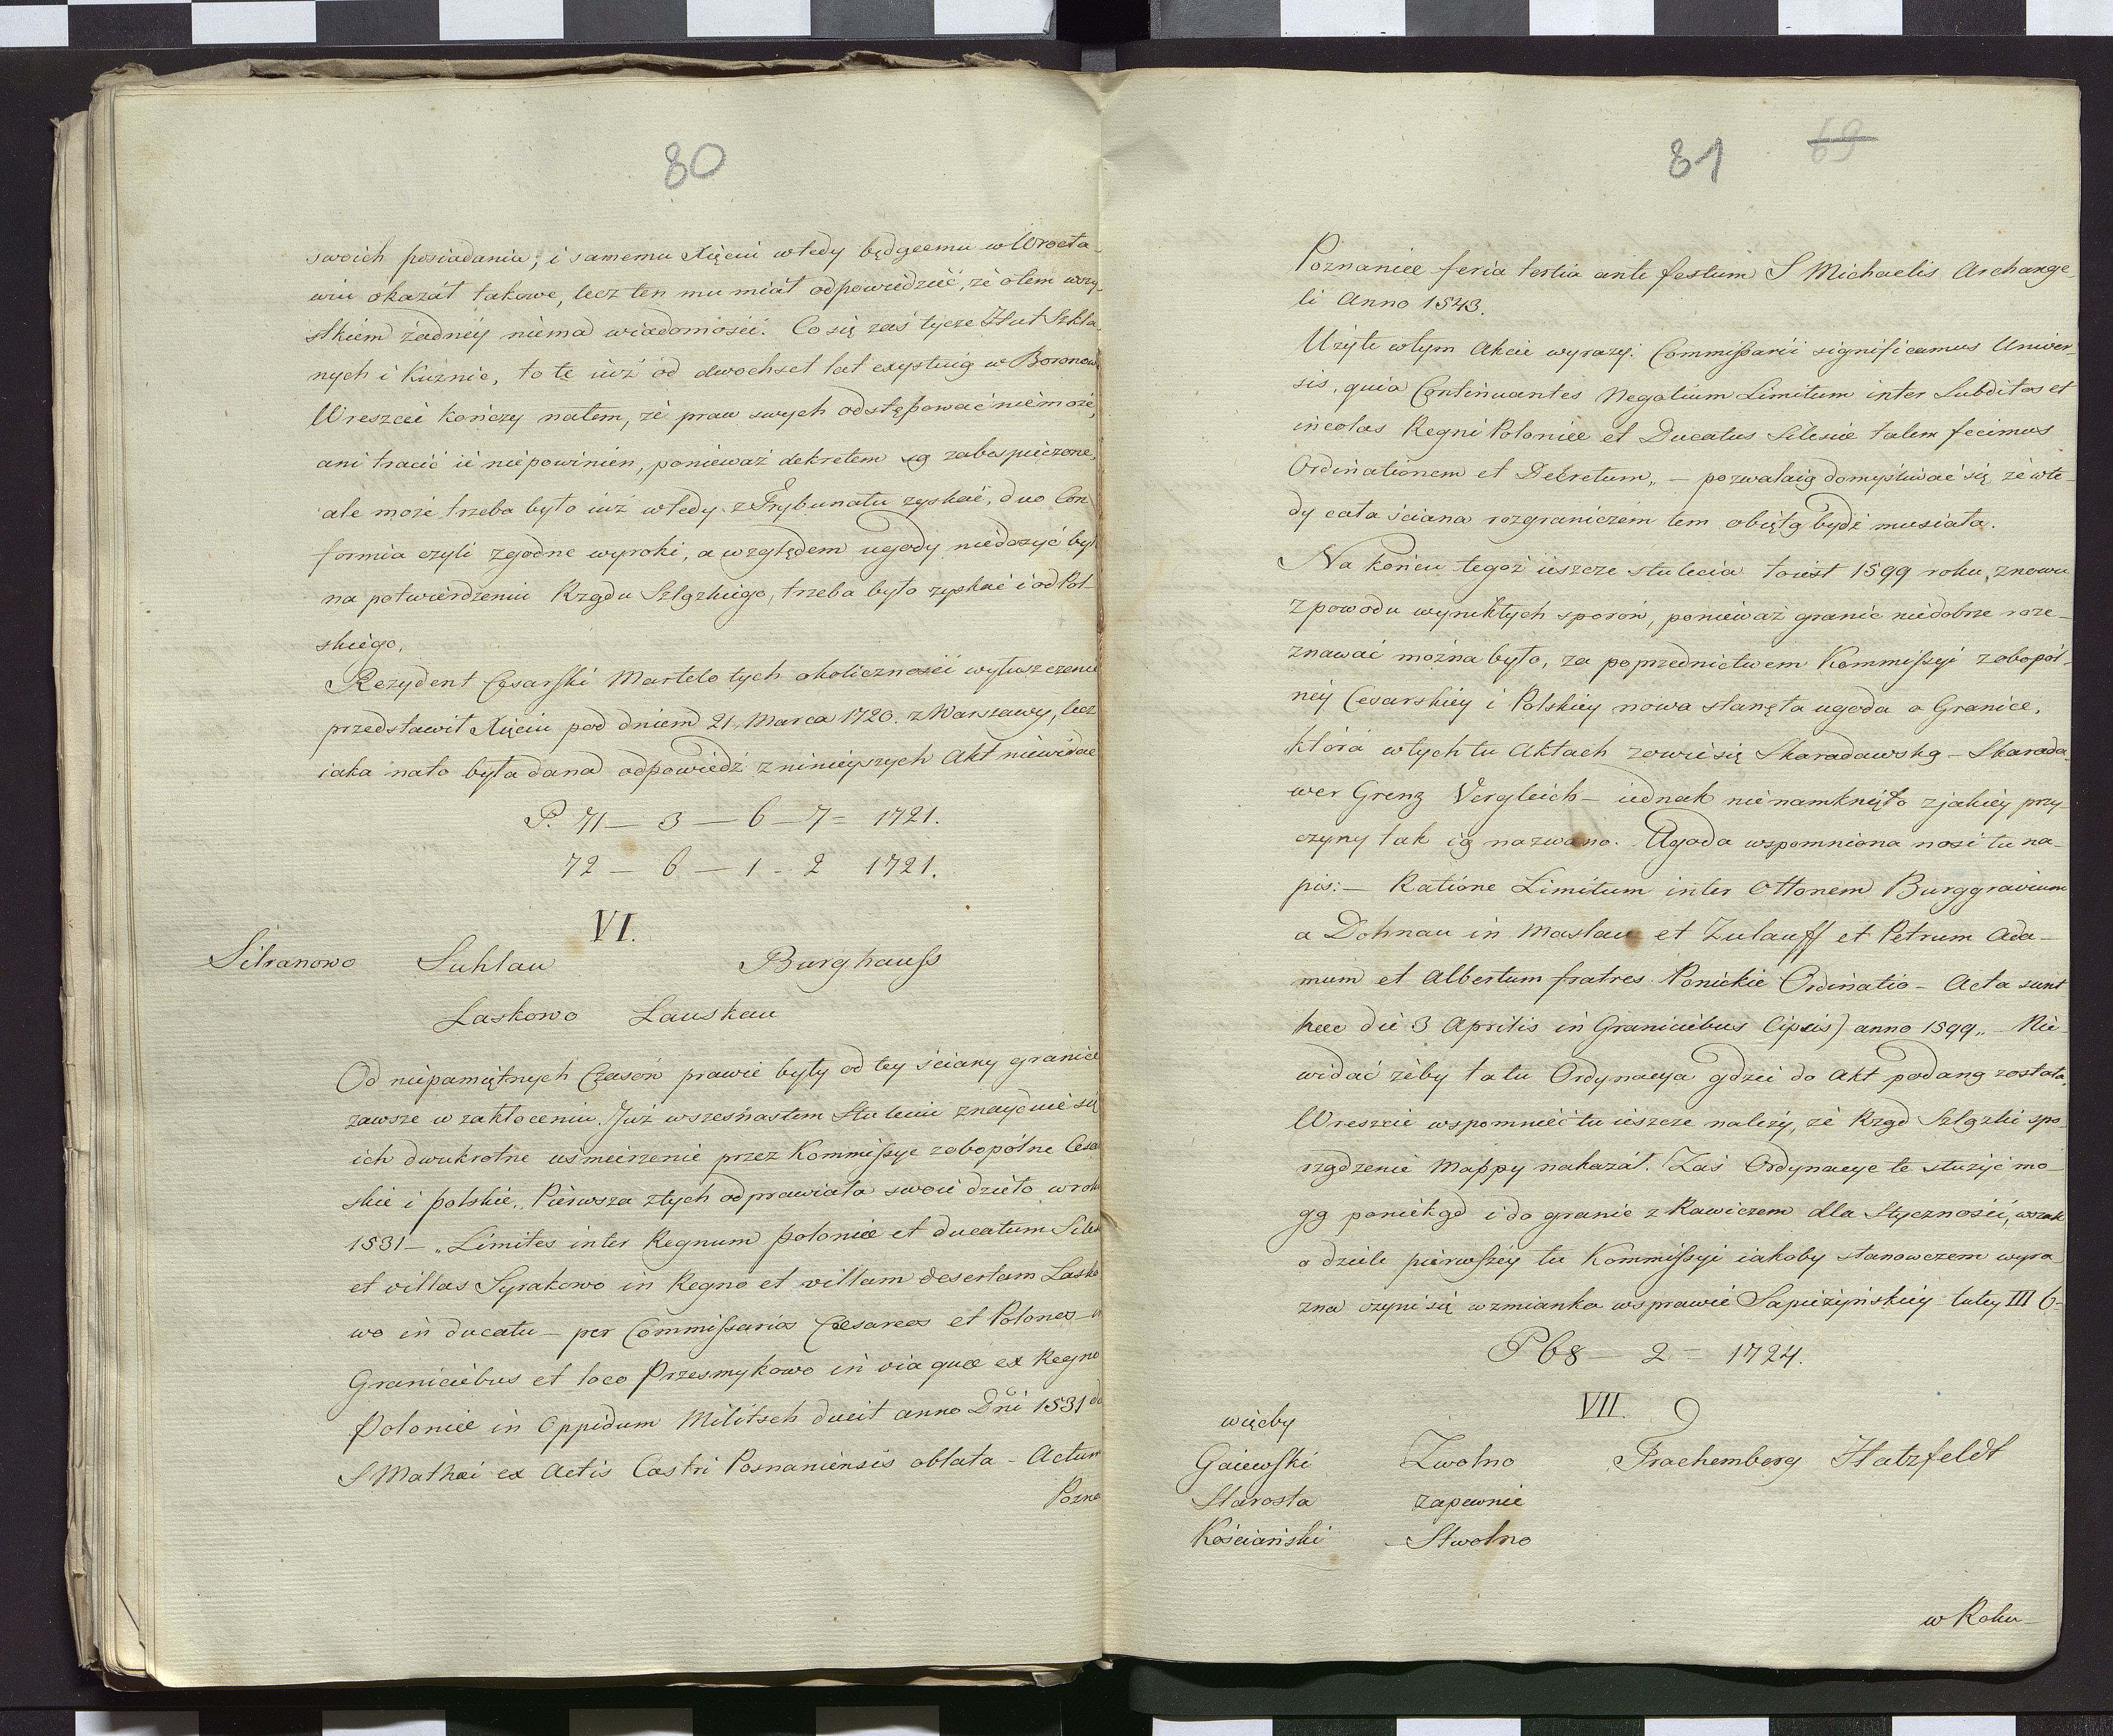 80
swoich posiadania, i samemu Xięciu wtedy będącemu w Wrocła-
wiu okazát takowe, lecz ten mu miát odpowiedzieć, że o tem wszy-
stkiem żadnéy niema wiadomości. Co się zaś tycze Hut Szkla-
nych i Kuźnic, to te iuż od dwochset lat exystuią w Boronow
Wreszcie kończy natem, że praw swych odstępować niemoże,
ani tracić ie niepowinien, ponieważ dekretem są zabespieczone,
ale może trzeba było iuż wtedy z Trybunatu zyskać, duo Con-
formia czyli zgodne wyroki, a względem ugody niedosyć by
na potwierdzeniu Rządu Szląskiego, trzeba było zyskać i od Pol-
skiégo.
Rezydent Cesarski Martelo tych okoliczności wyłuszczenie
przedstawił Xięciu pod dniem 21. Marca 1720. z Warszawy, lecz
iaka nato była dana odpowiedź z niniéyszych Akt niewidać
P. 71 — 3 — 6 — 7 = 1721.
72 — 6 — 1 - 2 1721.
VI.
Sitranowo Suhlau Burghauss
Laskowo Lauskau
Od niepamiętnych Czasów prawie były od tey ściany granice
zawsze w zakłoceniu. Już wszesnastem Stuleciu znayduie się
ich dwukrotne uśmierzenie przez Kommissye zobopólne Cesa
skie i polskie. Piérwsza ztych odprawiała swoie dzieło w roku
1531 — „Limites inter Regnum poloniæ et ducatum Siles
et villas Syrakowo in Regno et villam desertam Lasko
wo in ducatu — per Commissarios Cæsareos et Polonos — in
Graniciebus et loco Przesmykowo in via quæ ex Regno
Poloniæ in Oppidum Militsch ducit anno Dni 1531 
S Mathæi ex Actis Castri Posnaniensis oblata - Actum
Pozna
81 69
Poznaniæ feria tertia ante festum S Michaelis Archange-
li Anno 1543.
Użyte wtym Akcie wyrazy: Commissarii significamus Univer-
sis, quia Continuantes Negotium Limitum inter Subditos et
incolas Regni Poloniæ et Ducatus Silesiæ talem fecimus
Ordinationem et Dekretum„ — pozwalaią domyśliwać się, że wte-
dy cała ściana rozgraniczem tem obiętą bydź musiała.
Na końcu tegoż ieszcze stulecia toiest 1599 roku, znowu
z powodu wynikłych sporów, ponieważ granic niedobrze roze-
znawać można było, za poprzednictwem Kommissyi zobopól-
néy Cesarskiéy i Polskiéy nowa stanęła ugoda o Granice,
która wtych tu Aktach zowie się Skaradawską — Skarada-
wer Grenz Vergleich — iednak nie namknięto z jakiéy przy-
czyny tak ią nazwano. Ugoda wspomniona nosi tu na-
pis: — Ratione Limitum inter Ottonem Burggravium
a Dohnau in Maslau et Zulauff et Petrum Ada-
mum et Albertum fratres Ponickie Ordinatio — Acta sunt
hæc die 3 Aprilis in Graniciebus (ipsis) anno 1599„ — Nie
widać żeby ta tu Ordynacya gdzie do Akt podaną została,
Wreszcie wspomnieć tu ieszcze należy, że Rząd Szląski spo-
rządzenie Mappy nakazát. Zaś Ordynacye te służyć mo-
gą poniekąd i do granic z Rawiczem dla Styczności, wszak
o dziele piérwszéy tu Kommissyi iakoby stanowczem wyra
zna czyni się wzmianka wsprawie Sapieżyńskiéy tutey III 6-
P 68 — 2 — 1724.
VII.
więcby
Gaiewski Zwolno Trachemberg Hatzfeldt
Starosta zapewnie
Kościański Stwolno
w Roku-